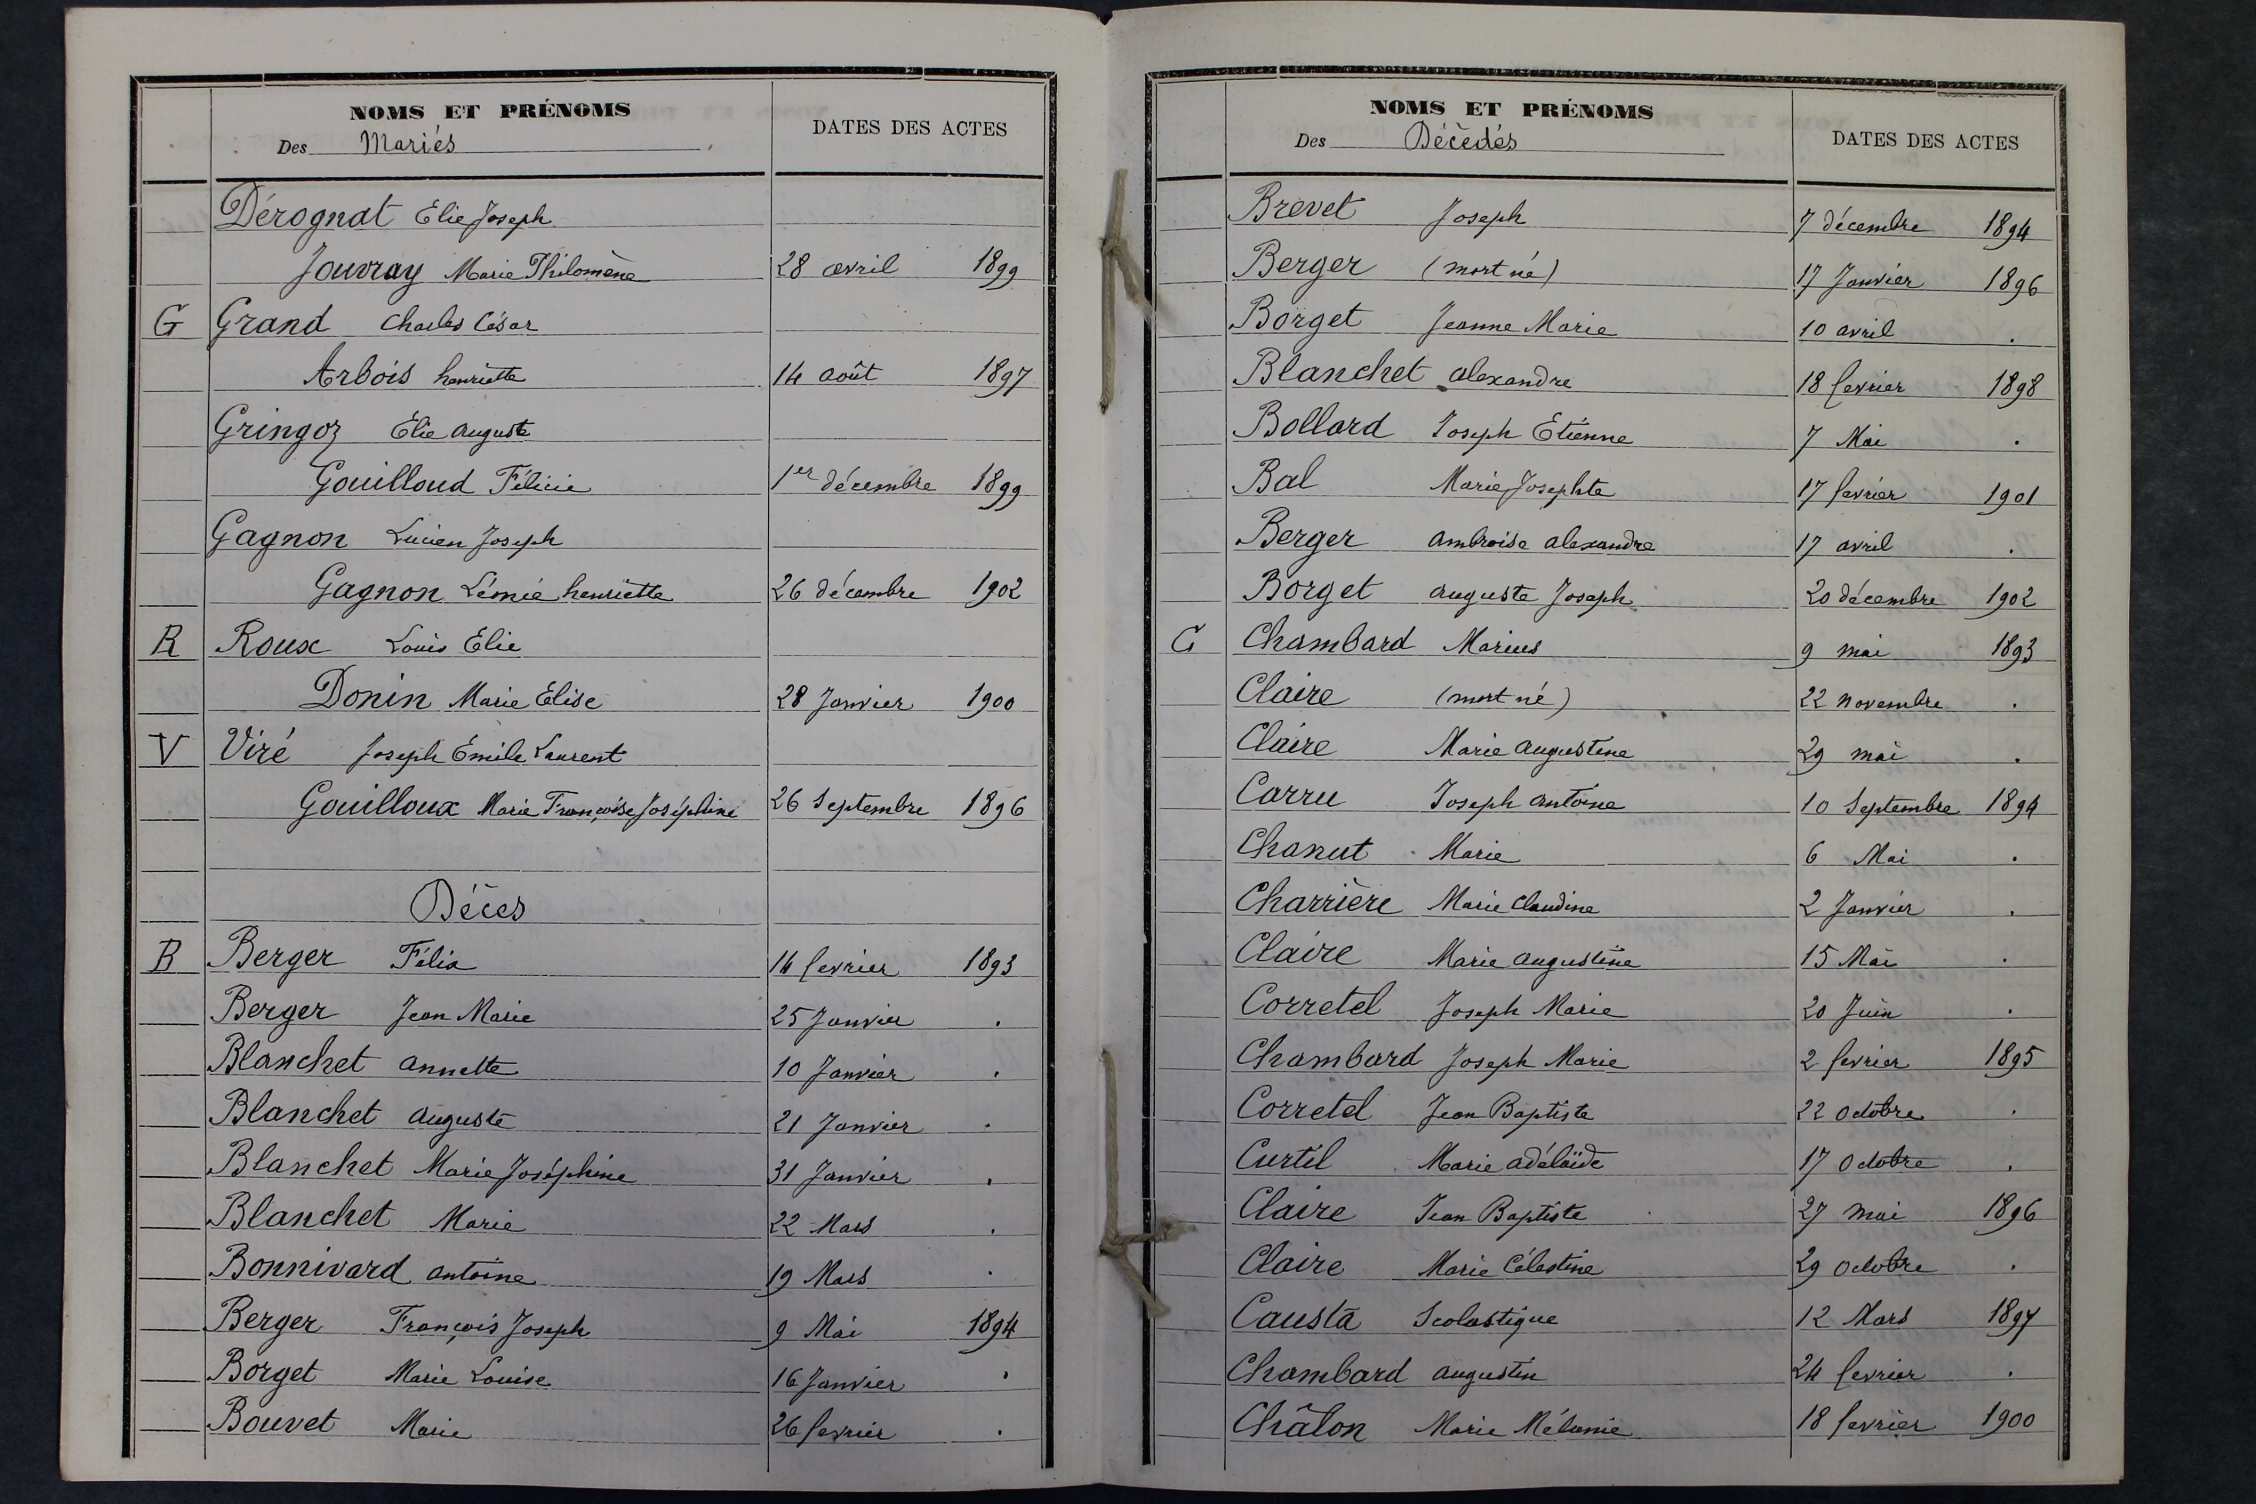 NOMS ET PRÉNOMS
Des Mariés
DATES DES ACTES
Dérognat Elie Joseph
Jouvray Marie Philomène 28 avril 1899
G Grand Charles César
Arbois henriette 14 août 1897
Gringoz Élie auguste
Gouilloud Félicie 1er décembre 1899
Gagnon Lucien Joseph
Gagnon Léonie henriette 26 décembre 1902
R Roux Louis Elie
Donin Marie Elise 28 Janvier 1900
V Viré Joseph Émile Laurent
Gouilloux Marie Françoise Joséphine 26 Septembre 1896
Décès
B Berger Félix 14 fevrier 1893
Berger Jean Marie 25 Janvier .
Blanchet annette 10 Janvier .
Blanchet auguste 21 Janvier .
Blanchet Marie Joséphine 31 Janvier .
Blanchet Marie 22 Mars .
Bonnivard antoine 19 Mars .
Berger François Joseph 9 Mai 1894
Borget Marie Louise 16 Janvier .
Bouvet Marie 26 fevrier .
NOMS ET PRÉNOMS
Des Décédés
DATES DES ACTES
Brevet Joseph 7 décembre 1894
Berger (mort né) 17 Janvier 1896
Borget Jeanne Marie 10 avril .
Blanchet alexandre 18 fevrier 1898
Bollard Joseph Etienne 7 Mai .
Bal Marie Josephte 17 fevrier 1901
Berger ambroise alexandre 17 avril .
Borget auguste Joseph 20 décembre 1902
C Chambard Marius 9 mai 1893
Claire (mort né) 22 novembre .
Claire Marie augustine 29 mai .
Carru Joseph antoine 10 Septembre 1894
Chanut Marie 6 Mai .
Charrière Marie Claudine 2 Janvier .
Claire Marie augustine 15 Mai .
Corretel Joseph Marie 20 Juin .
Chambard Joseph Marie 2 fevrier 1895
Corretel Jean Baptiste 22 octobre .
Curtil Marie adélaïde 17 octobre .
Claire Jean Baptiste 27 mai 1896
Claire Marie Célestine 29 octobre .
Causta Scolastique 12 Mars 1897
Chambard augustin 24 fevrier .
Châlon Marie Mélanie 18 fevrier 1900